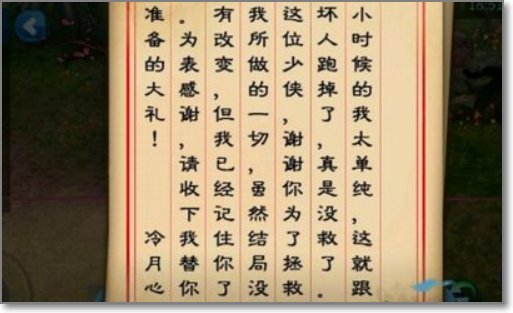 小时候的我太单纯，这就跟
坏人跑掉了，真是没救了。
这位少侠，谢谢你为了拯救
我所做的一切，虽然结局没
有改变，但我已经记住你了
。为表感谢，请收下我替你
准备的大礼！ 冷月心
18:51